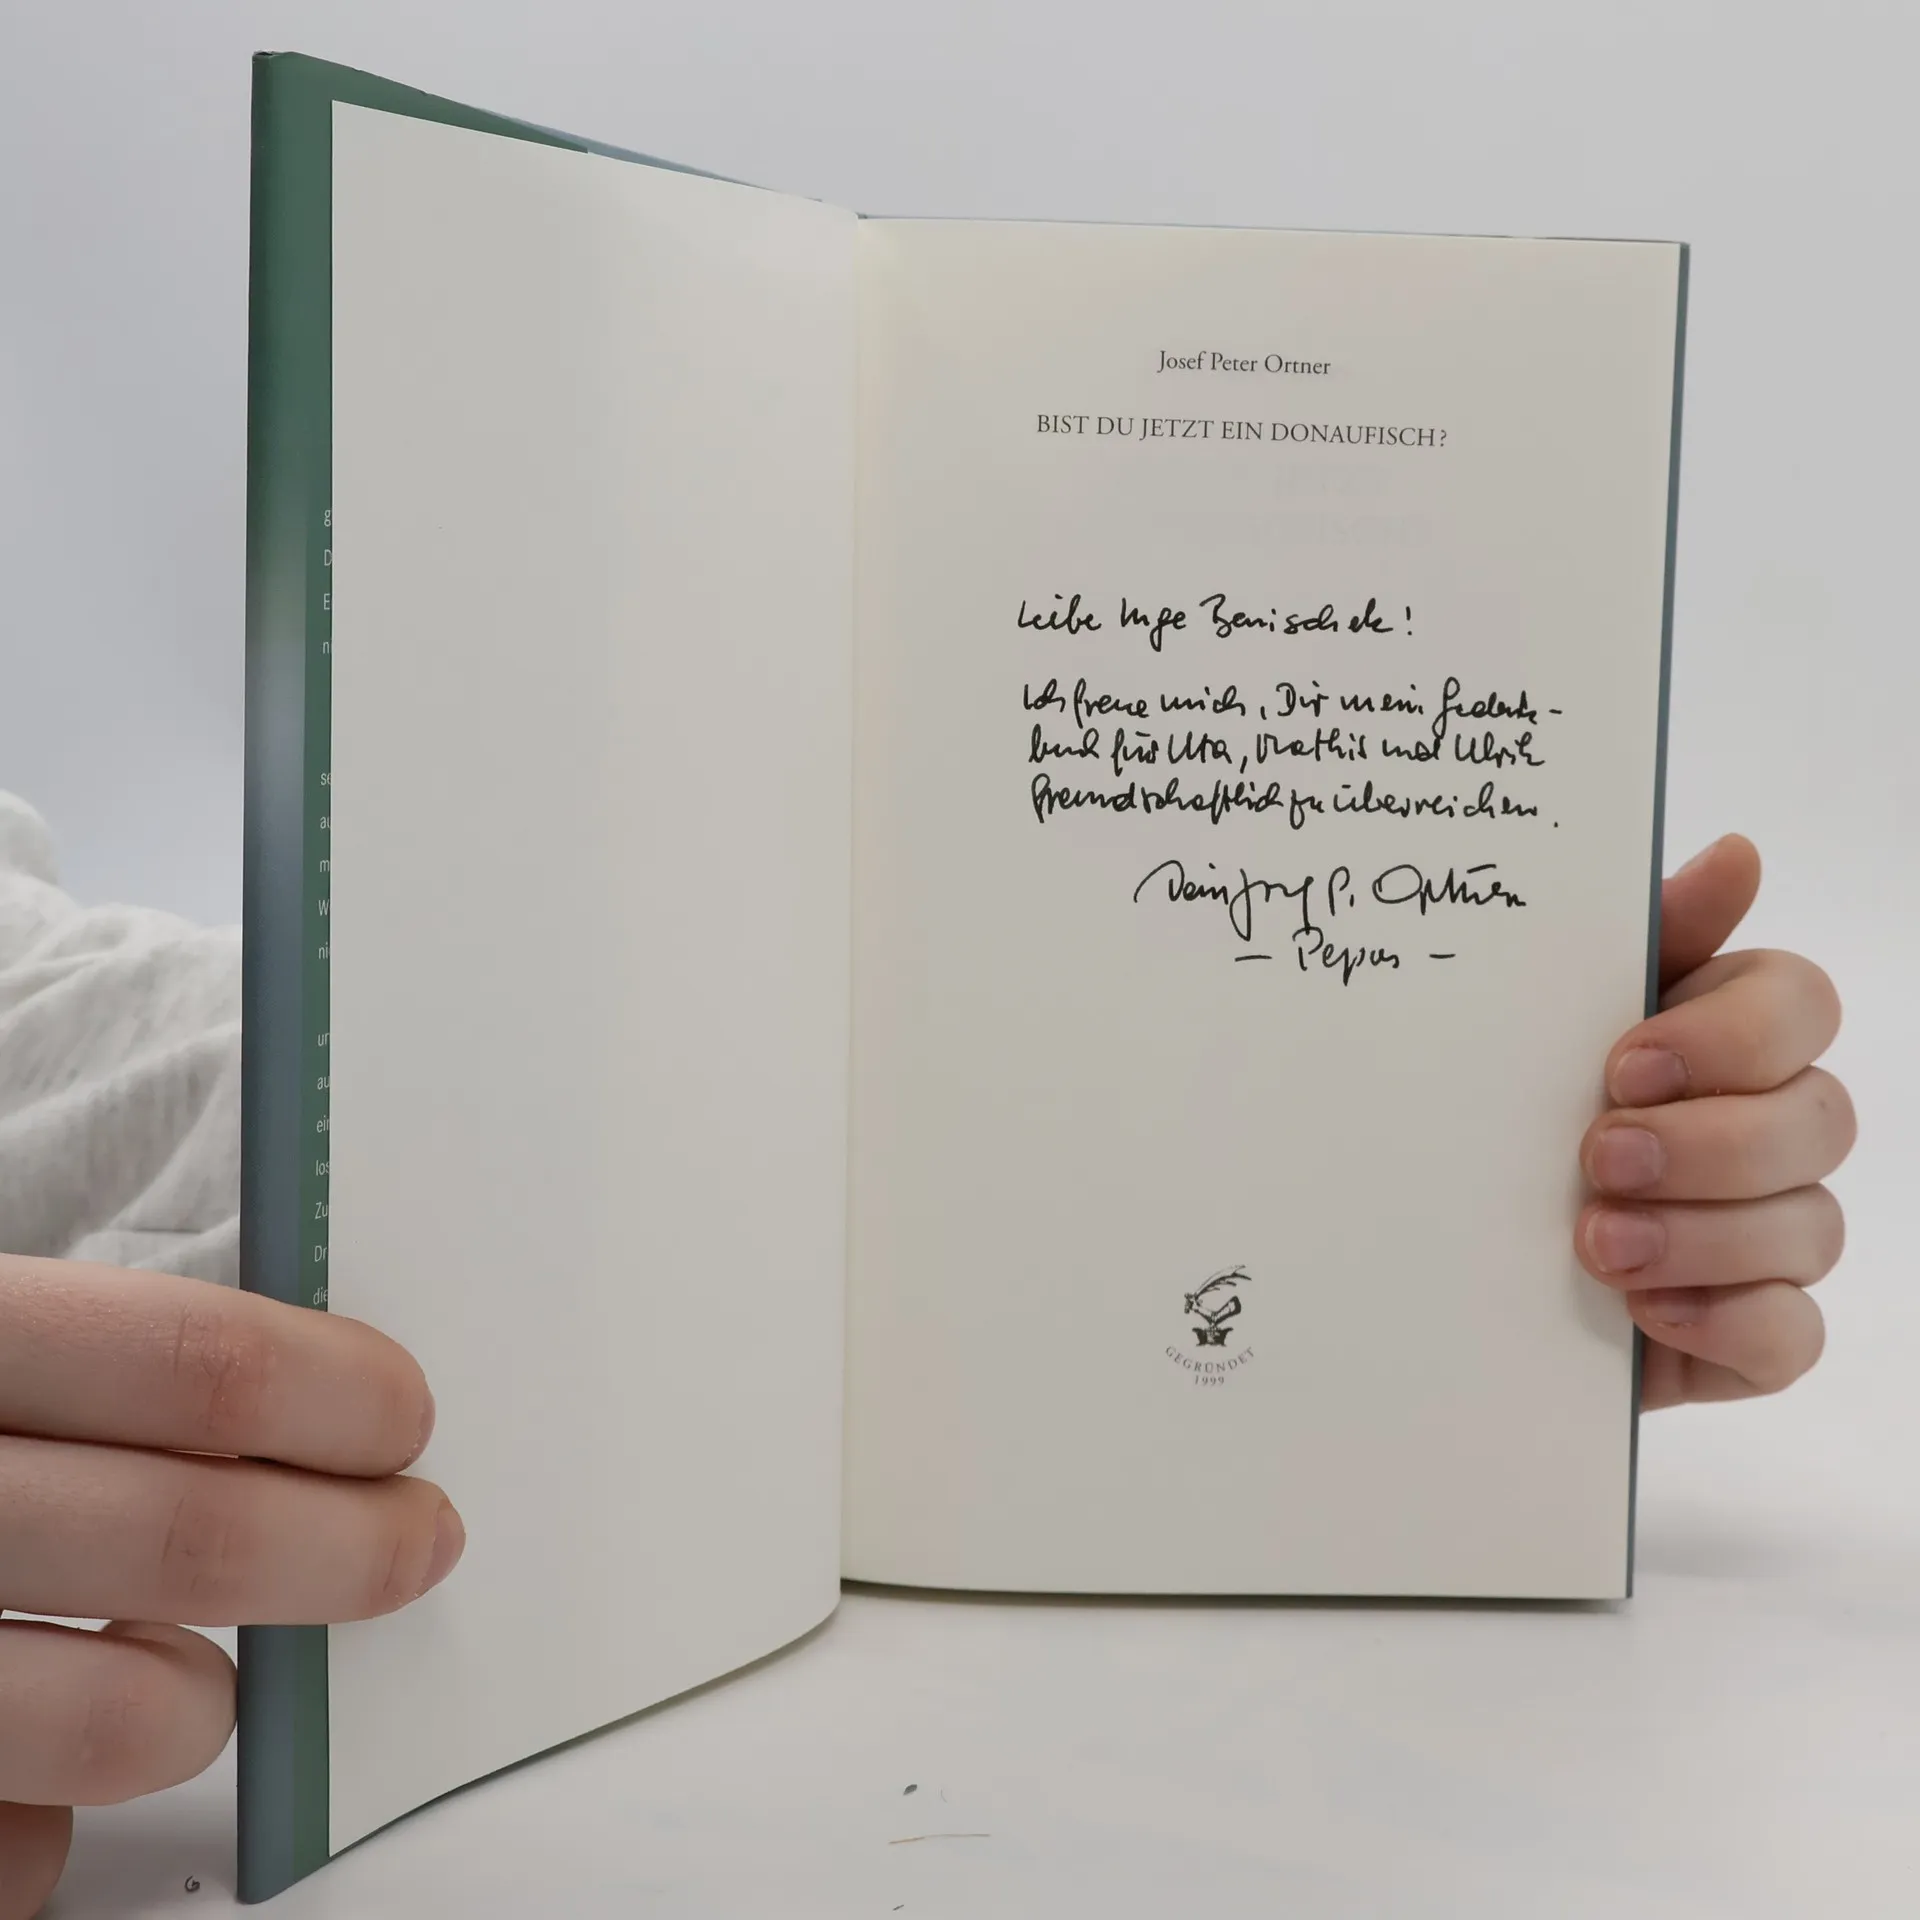 g
D
E
ni
se
au
m
W
ni
un
au
ein
los
Zu
Dr
die
Josef Peter Ortner
BIST DU JETZT EIN DONAUFISCH?
Liebe Inge Benischek!
Ich freue mich, Dir mein Gedenk-
buch für Uta, Mathis und Ulrik
freundschaftlich zu überreichen.
Dein Josef P. Ortner
- Pepus -
GEGRÜNDET
1999